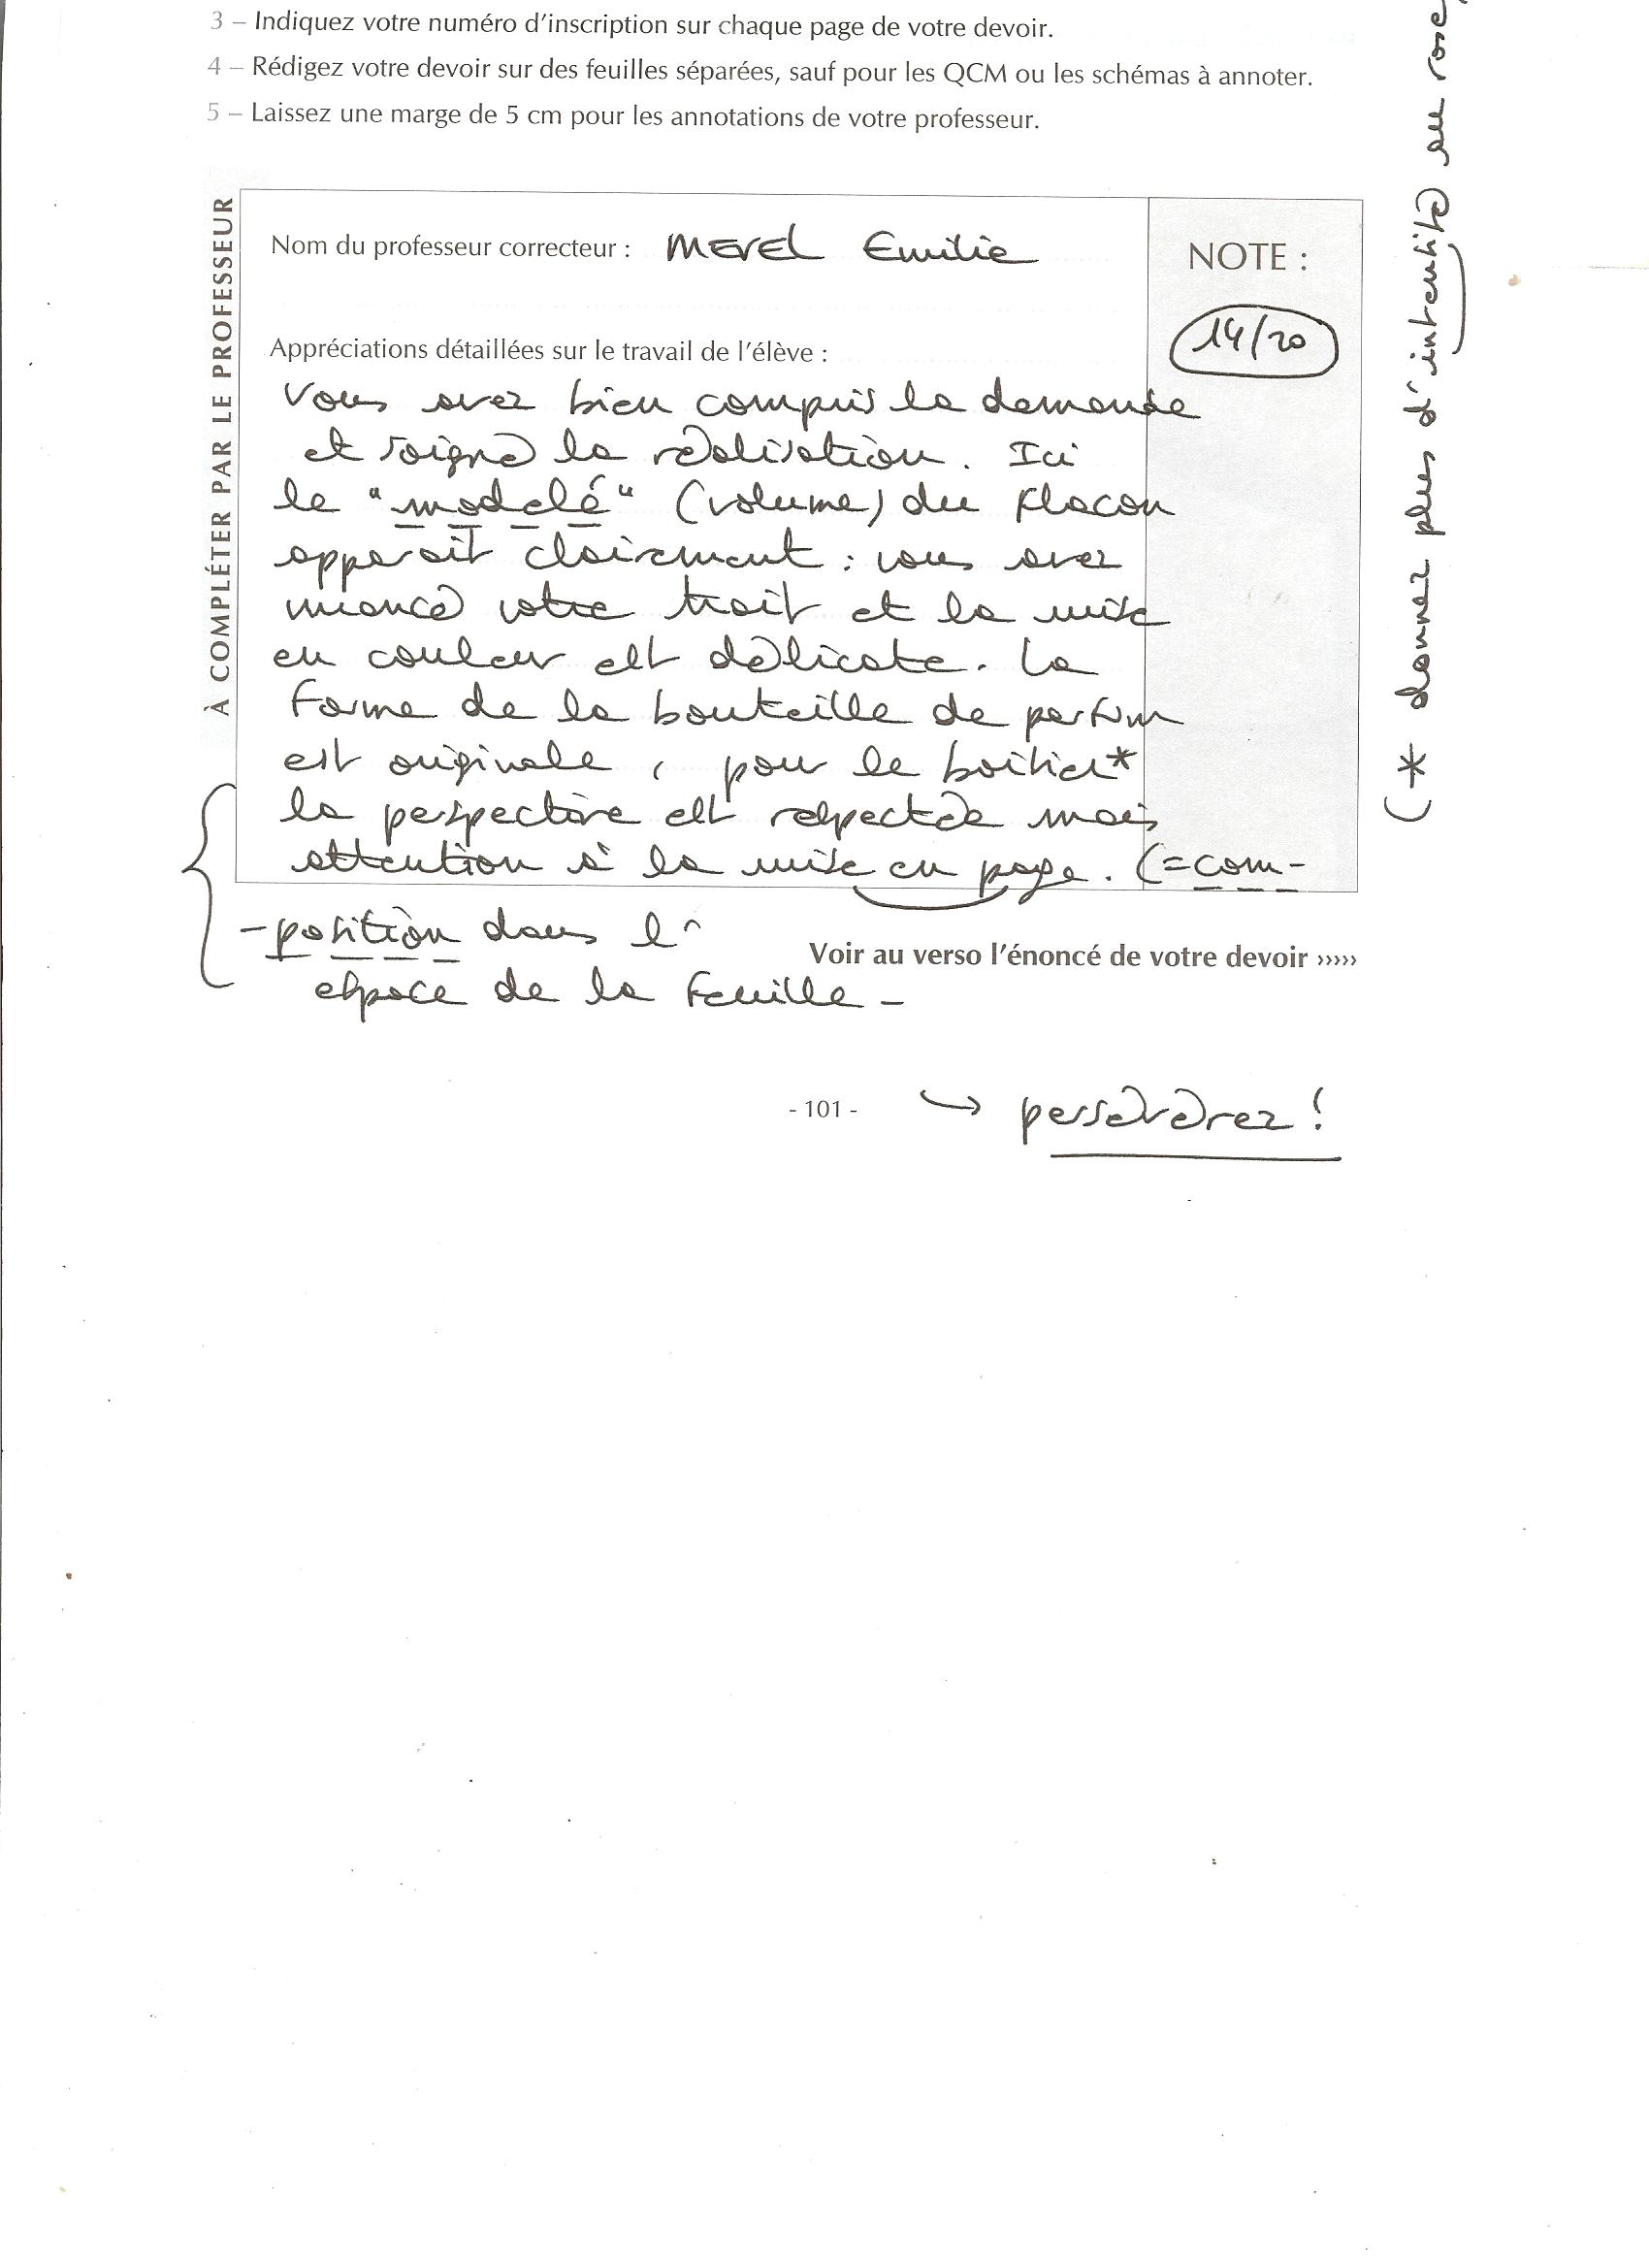 3 – Indiquez votre numéro d'inscription sur chaque page de votre devoir.
4 – Rédigez votre devoir sur des feuilles séparées, sauf pour les QCM ou les schémas à annoter.
5 – Laissez une marge de 5 cm pour les annotations de votre professeur.
À COMPLÉTER PAR LE PROFESSEUR
Nom du professeur correcteur : Merel Emilie
NOTE :
14/20
Appréciations détaillées sur le travail de l'élève :
Vous avez bien compris la demande
et soigné la réalisation. Ici
le "modelé" (volume) du flacon
apparaît clairement : vous avez
nuancé votre trait et la mise
en couleur est délicate. La
forme de la bouteille de parfum
est originale, pour le boîtier*
la perspective est respectée mais
attention à la mise en page. (=com-
-position dans l'
espace de la feuille -
Voir au verso l'énoncé de votre devoir ›››››
- 101 -
→ persévérez !
(* donnez plus d'intensité au rose)